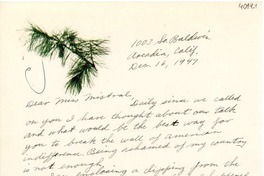 1003 So. Baldwin
Arcadia, Calif.
Dec. 16, 1947
Dear Miss Mistral,
Daily since we called
on you I have thought about our talk
and what would be the best way for
you to break the wall of american
indifference. Being ashamed of my country
is not enough!
enclosing a clipping from the